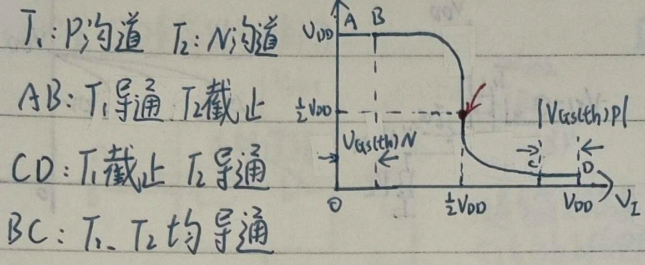 T₁:P沟道 T₂:N沟道
AB:T₁导通 T₂截止
CD:T₁截止 T₂导通
BC:T₁、T₂均导通
V_DD A B
½V_DD
V_GS(th)N
|V_GS(th)P|
C D
0 ½V_DD V_DD V_I